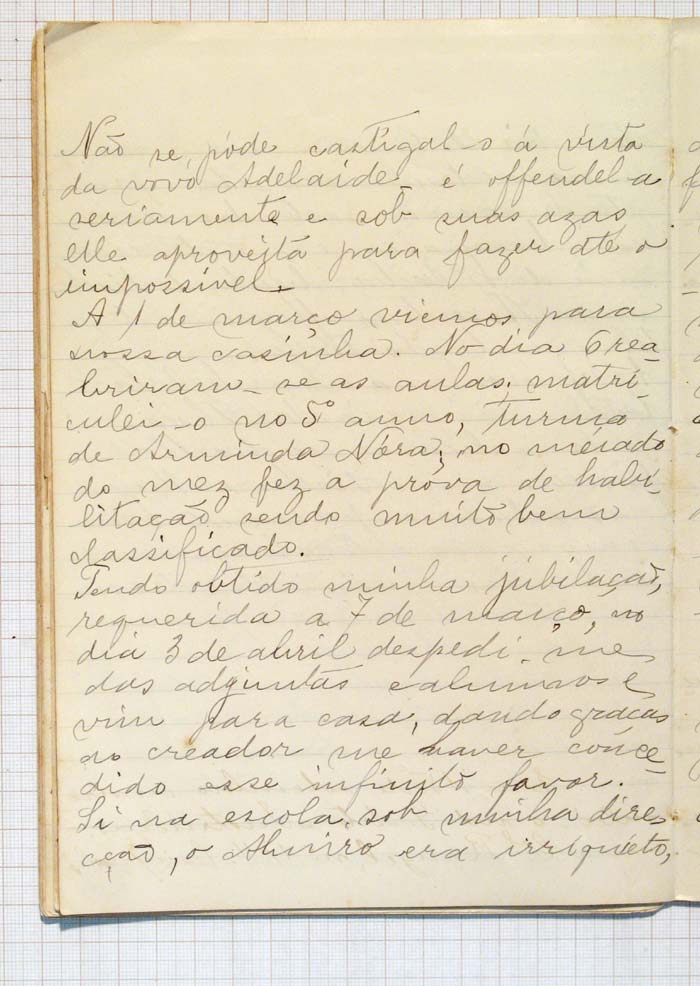 Não se póde castigal-o á vista
da vovó Adelaide - é offendel-a
seriamente e sob suas azas
elle aproveita para fazer até o
impossivel.
A 1 de março viemos para
nossa casinha. No dia 6 rea-
briram-se as aulas; matri-
culei-o no 5º anno, turma
de Arminda Nóra; no meiado
do mez fez a prova de habi-
litação sendo muito bem
classificado.
Tendo obtido minha jubilação,
requerida a 7 de março, no
dia 3 de abril despedi-me
das adjuntas e alumnos e
vim para casa, dando graças
ao creador me haver conce-
dido esse infinito favor.
Si na escola, sob minha dire-
cção, o Almiro era irriquieto,